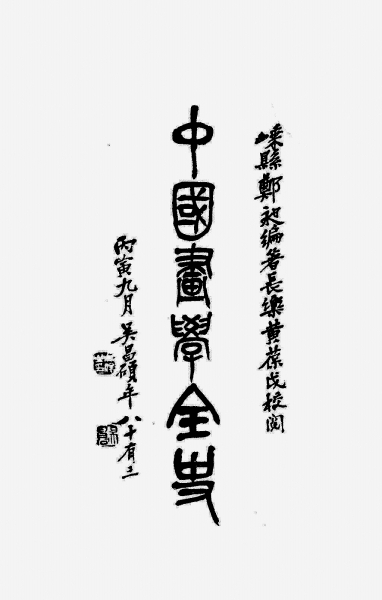 嵊縣鄭昶編著長樂黃葆戉校閱
中國畫學全史
丙寅九月吳昌碩年八十有三